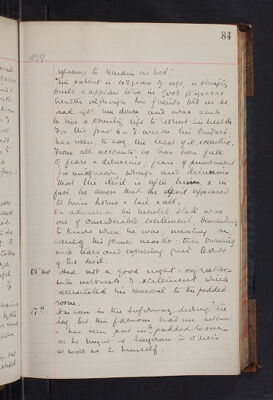 84
1899
refusing to remain in bed"
This patient is 43 years of age, is strongly
built & appears to be in good physical
health although his friends tell us he
had got run down and was sent
to live a country life to recruit his health
For the past 6 or 7 weeks his conduct
has been to say the least of it eccentric.
From all accounts he has been full
of fears & delusions, fears of punishment
for imaginary wrongs and delusions
that the devil is after him & in
fact he avers that the devil appeared
to him horns & tail & all.
On admission his mental state was
one of considerable excitement, demanding
to know where he was, mention
his former master - then bursting
into tears and expressing great terror
of the devil.
15th
Had not a good night:
with outbursts of excitement which
necessitated his removal to the padded
room.
17th
Has been in the Infirmary during the
day but this forenoon had an outburst
& has been put into padded room
as he might be dangerous to others
as well as to himself.